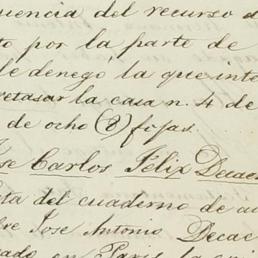 uencia del recurso d
to por la parte de
le denegó la que into
retasar la casa n. 4 de
de ocho (8) fojas.
se Carlos Félix Decae
ta del cuaderno de au
dre Jose Antonio Decae
en Paris la